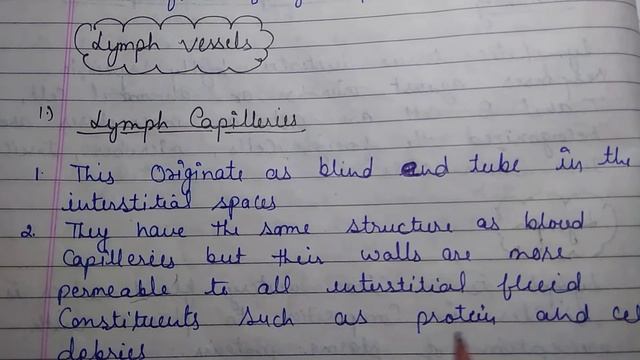 Lymph vessels
1.) Lymph Capilleries
1. This Originate as blind end tube in the
interstitial spaces
2. They have the same structure as bloud
Capilleries but their walls are more
permeable to all interstitial fluid
Constituents such as protein and cel
debries